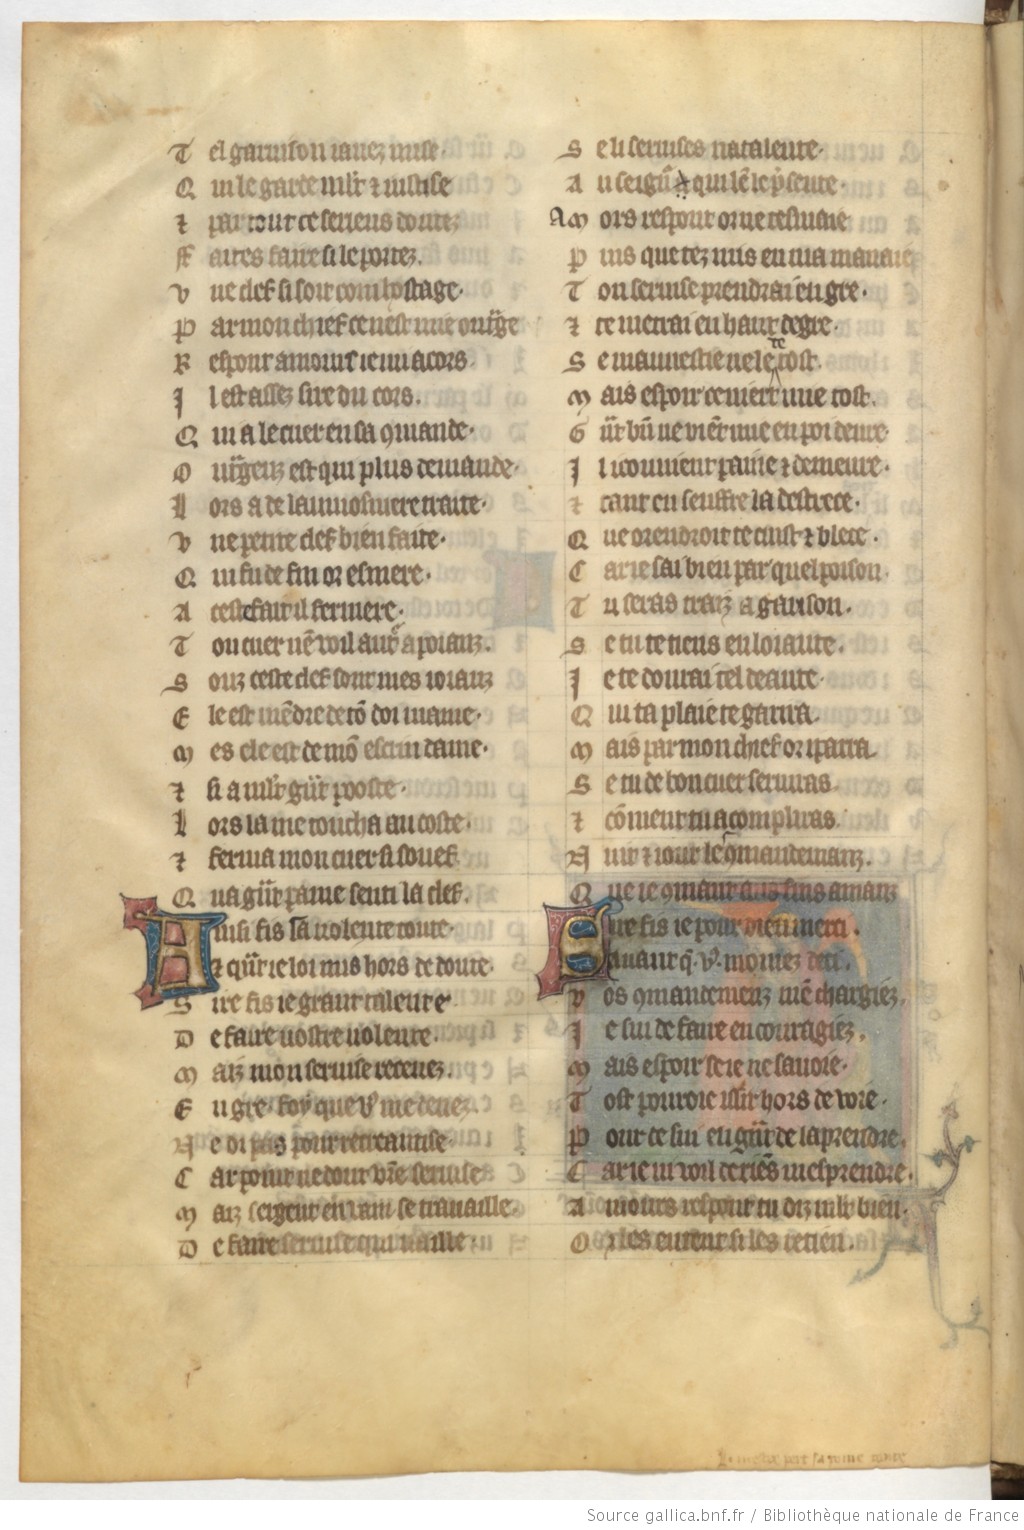 T el garnison i avez mise
Q ui le garde mlt⁊ iustise
⁊ par tout ce seriens doutez
ff aites faire si le portez.
V ne clef si soit com hostage.
P ar mon chief ce nest mie outrage
R espont amours ie mi acors.
J l est assez sire du cors.
Q ui a le cuer en sa ꝯmande.
O utͣgeuz est qui plus demande.
L ors a de laumosniere traite.
V ne petite clef bien faite.
Q ui fu de fin or esmere.
A ceste fait il fermere.
T on cuer nē voil autͤ apoiauz.
S ouz ceste clef sont mes ioiauz
E le est mēdre de tō doi mame.
M es ele est de mō escrin dame.
⁊ si a mlt gͣnt pooste.
L ors la me toucha au coste.
⁊ ferma mon cuer si souef
Q ua gͣnt paine senti la clef.
A insi fis sā volente toute.
⁊ qͣnt ie loi mis hors de doute.
S ire fis ie grant talent e
D e faire vostre volente.
M aiz mon seruise recevez.
E n gre. foy que vͦ me devez
N e di pas pour recreantise.
C ar point ne dout vrē seruise
M aiz seigeur en vain se travaille.
D e faire seruise qui vaille.
S e li seruises natalente.
A u seignͬ a qui lē le pͬsente.
Am ors respont or ne tesmaie
P uis que tez mis en ma manaie
T on seruise prendrai en gre.
⁊ te metrai en haut degre.
S e mauvestie ne le te tost.
M ais espoir ce niert mie tost.
G ͣnt biē ne viēt mie en poi deure.
J l i couuient paine ⁊ demeure.
⁊ tant en seuffre la destrece.
Q ue orendroit te cuist ⁊ blece.
C ar ie sai bien par quel poison.
T u seras traiz a garison.
S e tu te tiens en loiaute.
J e te donrai tel deaute.
Q ui ta plaie te garira.
M ais par mon chief or i parra.
S e tu de bon cuer serviras.
⁊ cōment tu acompliras.
N uit ⁊ iour le ꝯmandemanz.
Q ue ie ꝯmant aus fins amanz
S ire fis ie pour dieu merci.
avant q̄ vͦ. moviez deci.
V os ꝯmandemenz mē chargiez.
J e sui de faire encouragiez.
M ais espoir se ie ne savoie.
T ost pourroie issir hors de voie.
P our ce sui en gͣnt de laprendre.
C ar ie ni voil de riēs mesprendre.
A mours respont tu diz mlt bien.
O r les entent si les retien.
Source gallica.bnf.fr / Bibliothèque nationale de France